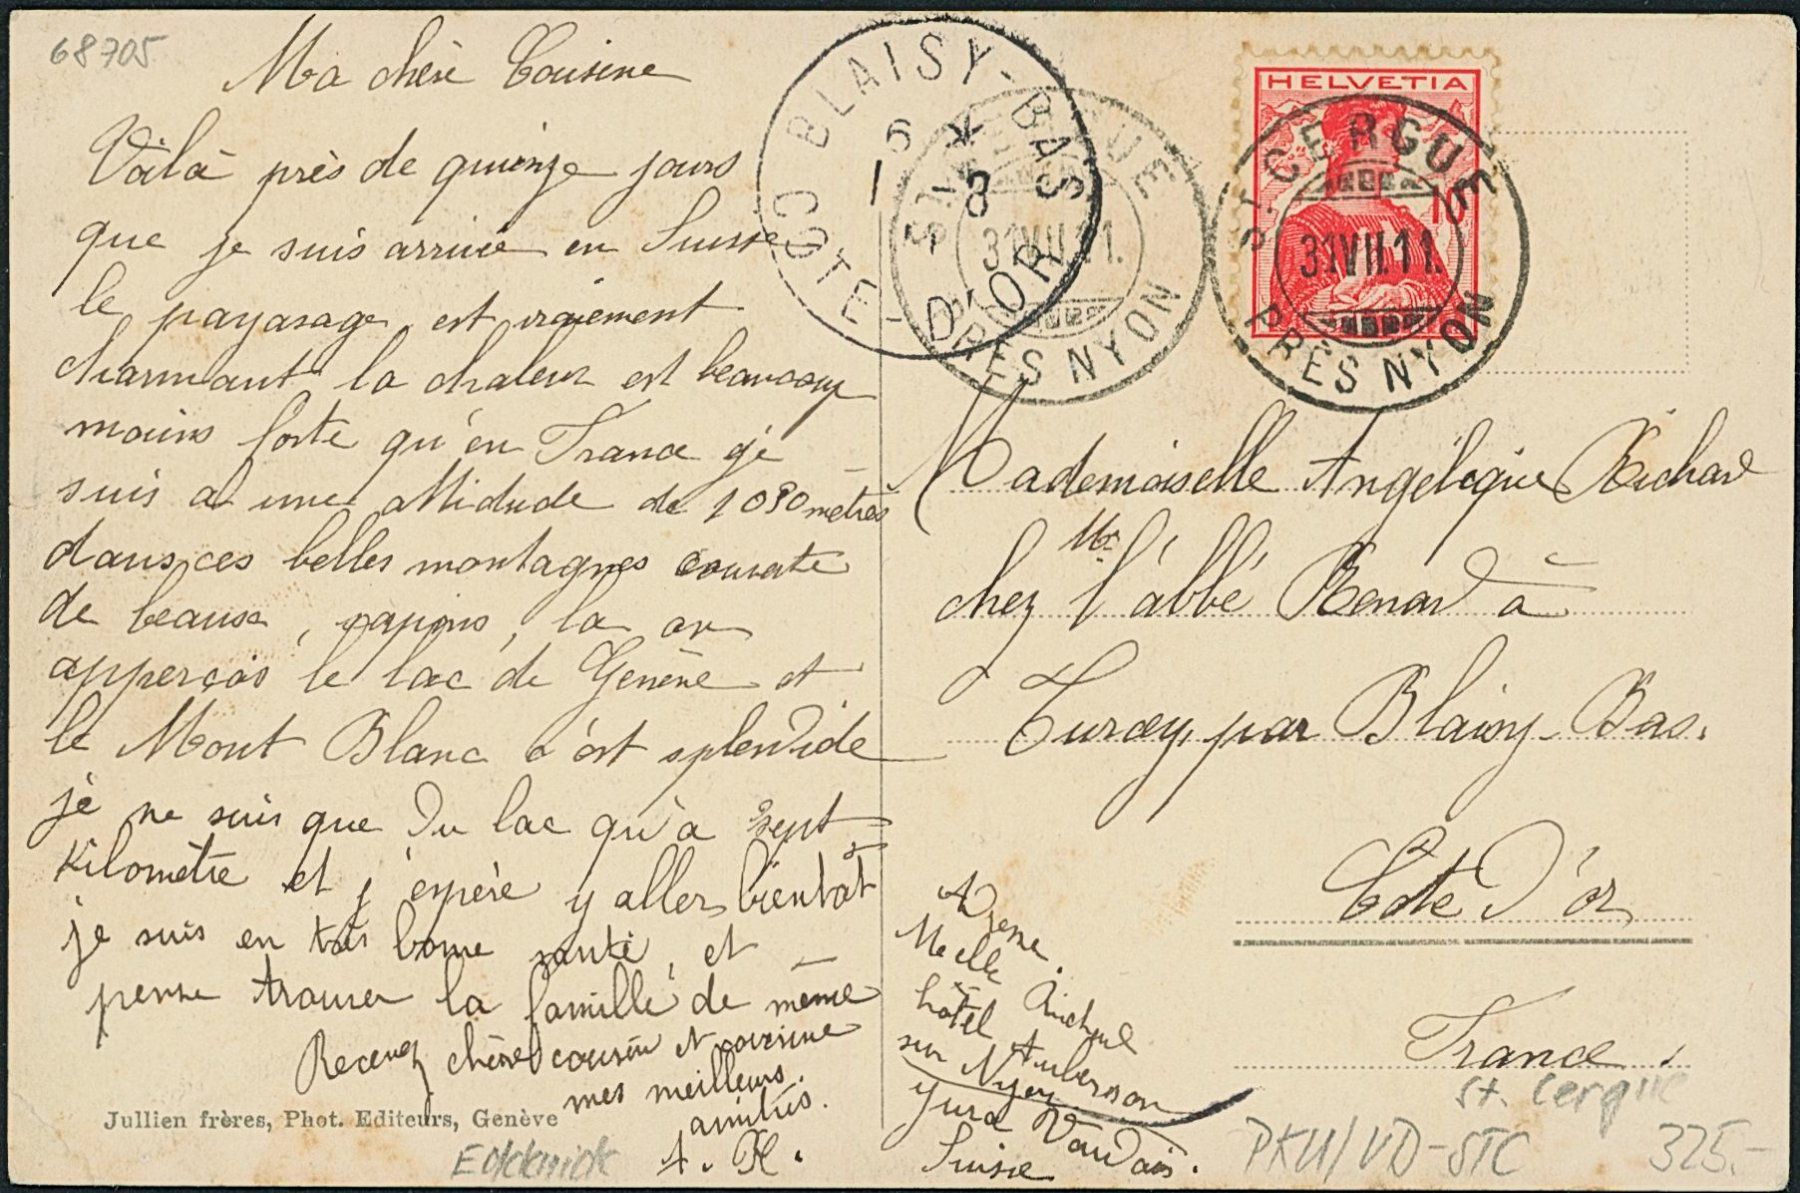 68705
Ma chère Cousine
Voilà près de quinze jours
que je suis arrivée en Suisse
le payasage est vraiement
charmant la chaleur est beaucoup
moins forte qu'en France je
suis a une altidude de 1080 mètres
dans ces belles montagnes couverte
de beause sapins, la on
apperçois le lac de Genève et
le Mont Blanc c'est splendide
je ne suis que du lac qu'à sept
kilomètre et j'espère y aller bientôt
je suis en très bonne santé, et
pense trouver la famille de même
Recevez chère cousin et cousine
mes meilleurs
amitiés.
A. R.
Jullien frères, Phot. Editeurs, Genève
BLAISY-BAS
6 * 
1 8
COTE-D'OR
ST CERGUE
31 VII.11.
PRÈS NYON
HELVETIA
10
ST CERGUE
31 VII.11.
PRÈS NYON
Mademoiselle Angélique Richard
chez Mr l'abbé Renard à
Turcey, par Blaisy-Bas.
Côte d'or
France.
Adresse.
Melle
hôtel Auberson
sur Nyon
Jura Vaudois.
Suisse
St. Cergue
PKU/VD-STC 325.-